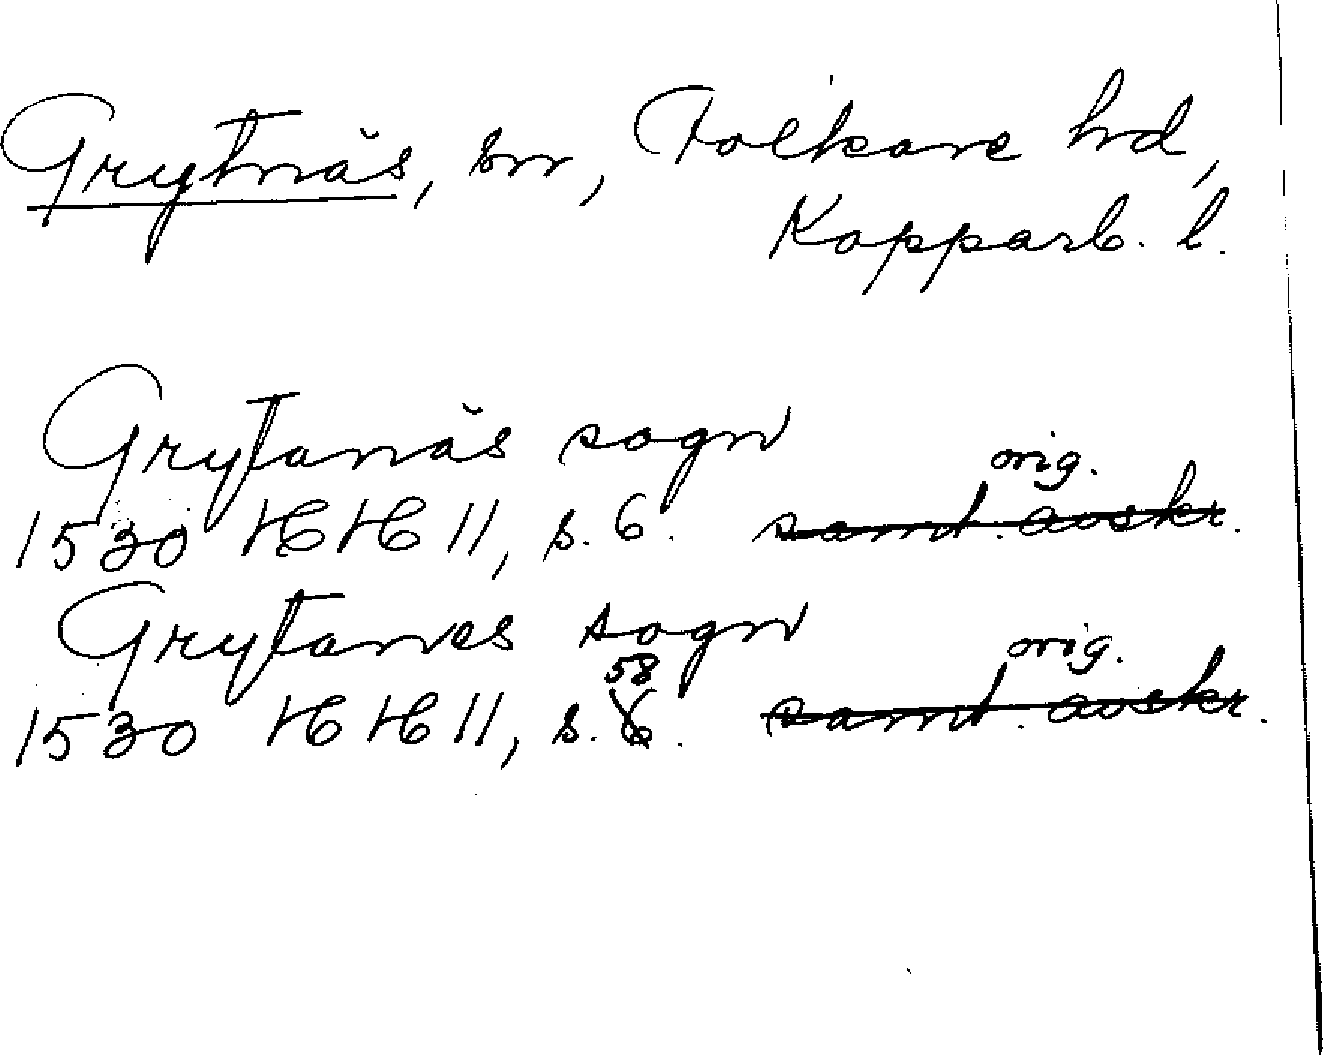 Grytnäs, sn, Folkare hd,
Kopparb. l.
Grytanäs sogn
orig.
1530 HH 11, s. 6. samt. avskr.
Grytanes sogn
58 orig.
1530 HH 11, s. 6. samt. avskr.